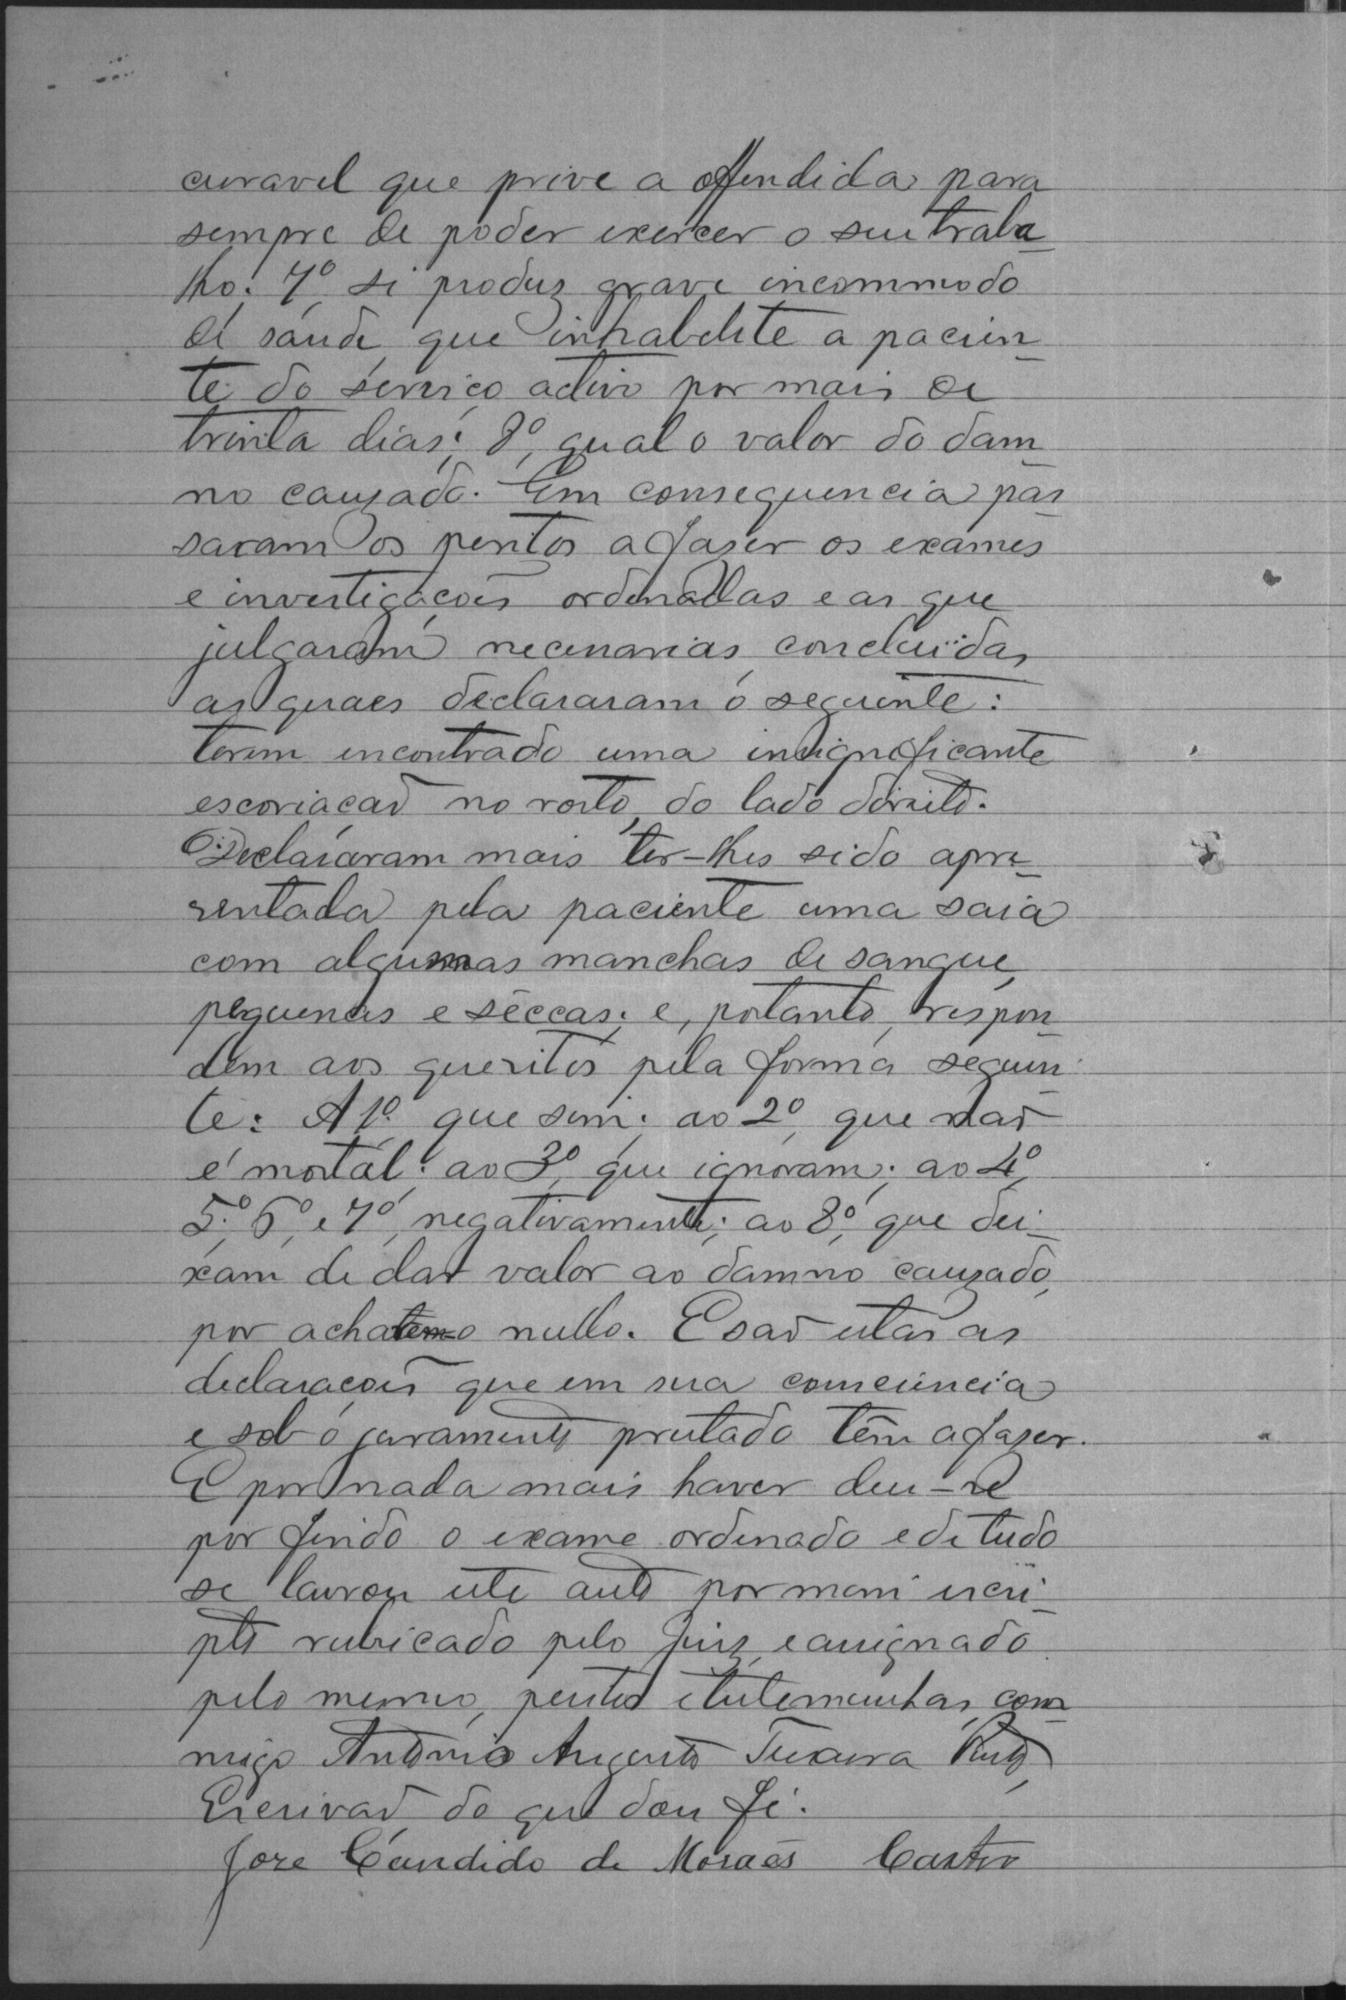 curavel que prive a offendida para
sempre de poder exercer o seu traba-
lho. 7º, si produz grave incommodo
de saúde que inhabelite a pacien-
te do serviço activo por mais de
trinta dias; 8º, qual o valor do dam-
no cauzado. Em consequencia pas-
saram os peritos a fazer os exames
e investigaçoẽs ordenadas e as que
julgaram necessarias, concluïdas
as quaes declararam o seguinte:
terem encontrado uma insignificante
escoriacaõ no rosto, do lado direito.
Declararam mais ter-lhes sido apre-
sentada pela paciente uma saia
com algumas manchas de sangue,
pequenas e sêccas; e, portanto, respon-
dem aos quesitos pela forma seguin-
te: A 1º que sim; ao 2º, que naõ
é mortal; ao 3º, que ignoram; ao 4º,
5º, 6º, e 7º, negativamente; ao 8º, que dei-
xam de dar valor ao damno cauzado,
por acharem-o nullo. E saõ estas as
declaraçoẽs que em sua consciencia
e sob o juramento prestado têm a fazer.
E por nada mais haver deu-se
por findo o exame ordenado e de tudo
se lavrou este auto por mim escri-
pto rubricado pelo Juiz, e assignado
pelo mesmo, peritos e testemunhas, com-
migo Antonio Augusto Teixeira Pinto,
Escrivaõ, do que dou fé.
Joze Candido de Moraes Castro